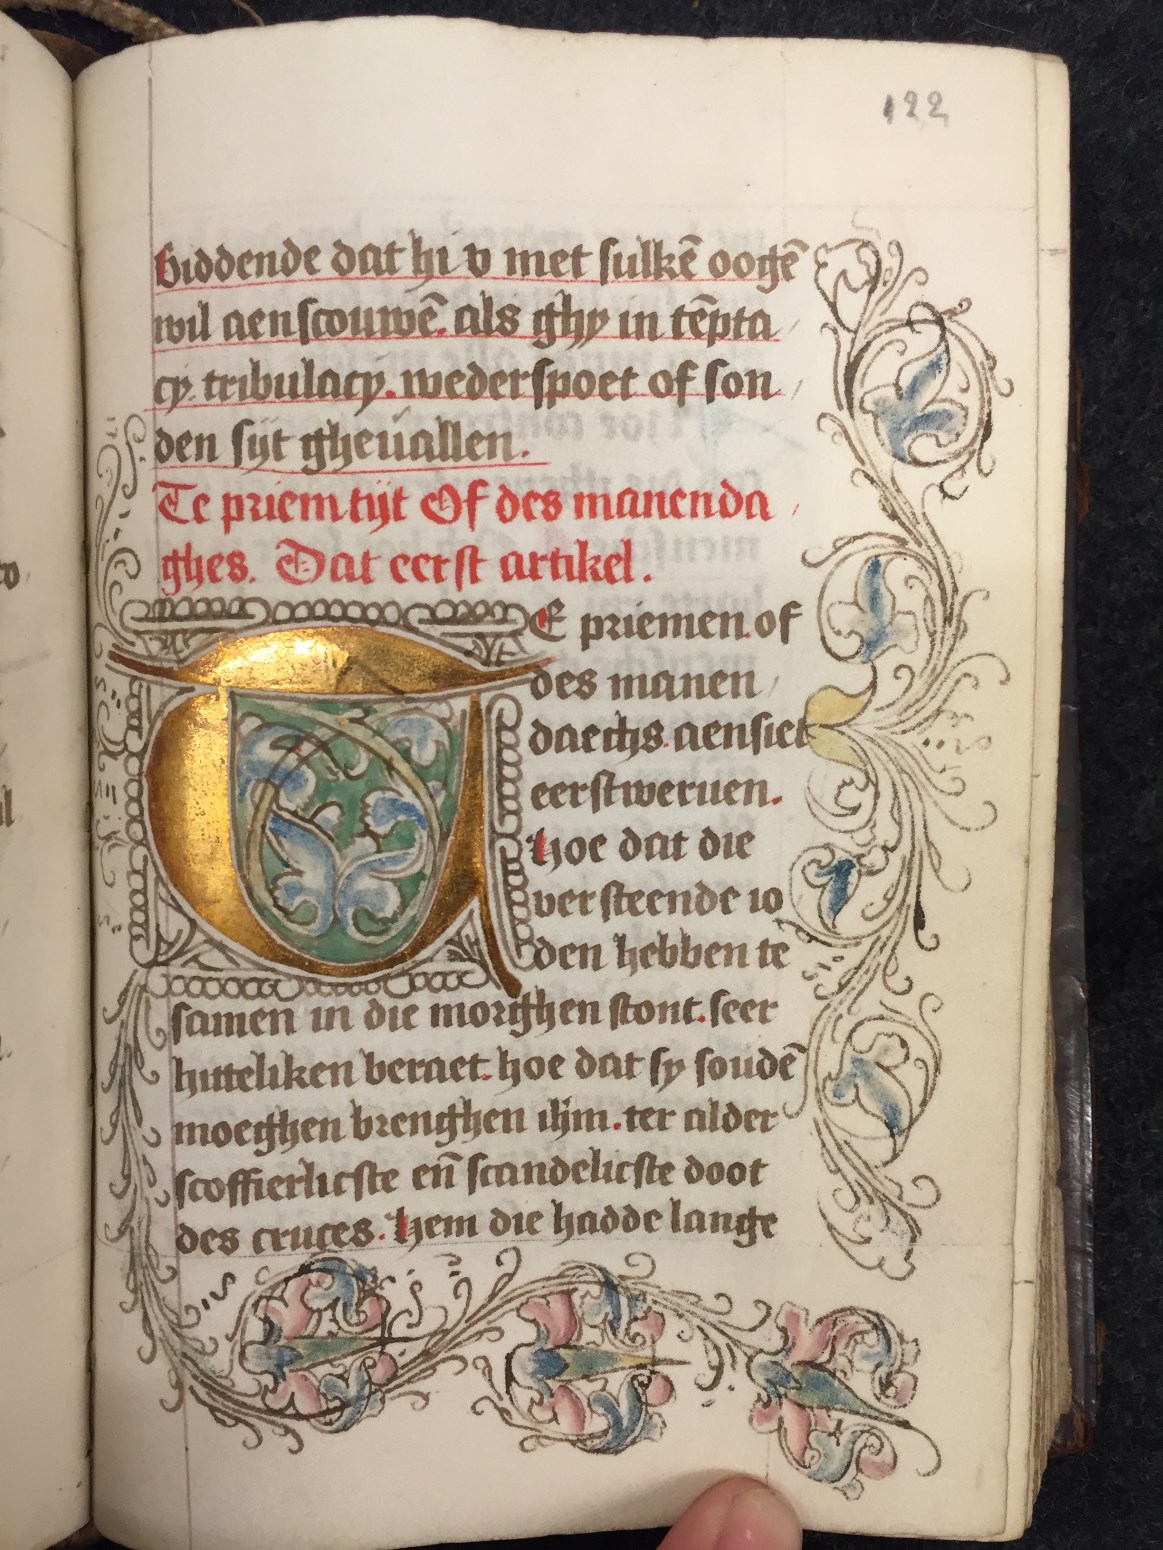 122
biddende dat hi v met sulkē oogē
wil aenscouwē. als ghy in tēpta
cy. tribulacy. wederspoet of son
den sijt gheuallen.
Te priem tijt Of des manenda
ghes. Dat eerst artikel.
TE priemen. of
des manen
daechs. aensiet
eerstweruen.
hoe dat die
versteende io
den hebben te
samen in die morghen stont. seer
hitteliken beraet. hoe dat sy soudē
moeghen brenghen ihm. ter alder
scoffierlicste en̄ scandelicste doot
des cruces. hem die hadde lange